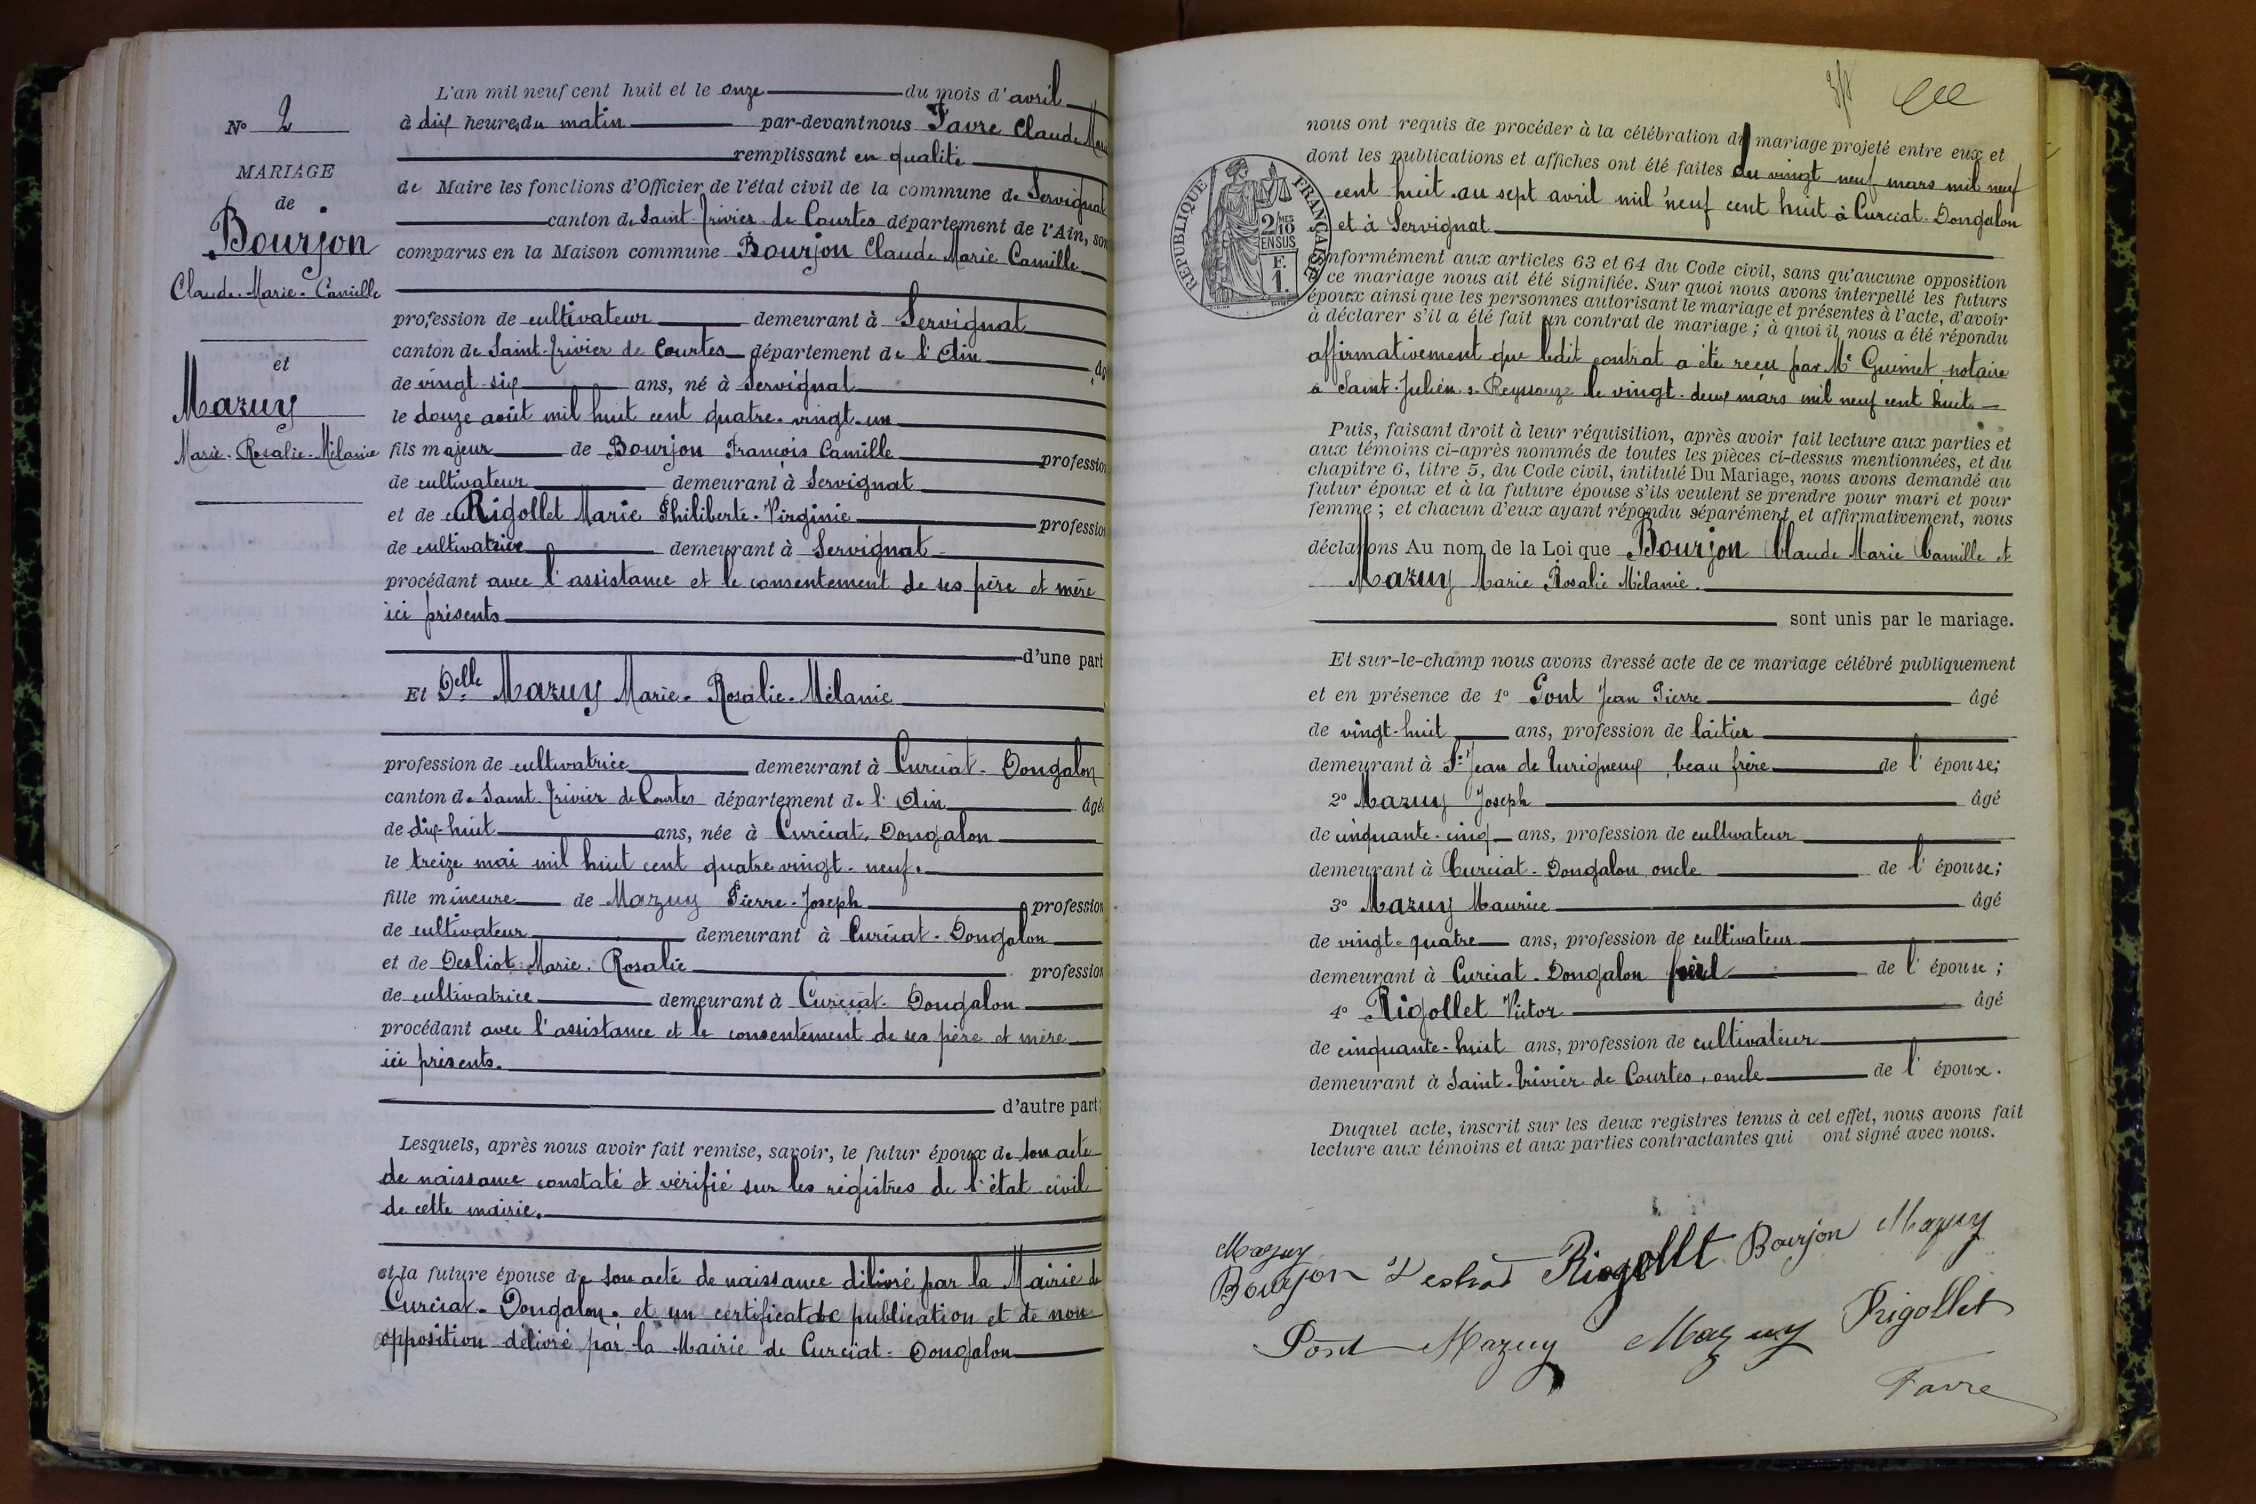 N° 2
MARIAGE
de
Bourjon
Claude-Marie-Camille
et
Mazuy
Marie-Rosalie-Mélanie
L'an mil neuf cent huit et le onze du mois d'avril
à dix heures du matin par-devant nous Favre Claude Marie
remplissant en qualité
de Maire les fonctions d'Officier de l'état civil de la commune de Servignat
canton de Saint-Trivier-de-Courtes département de l'Ain, sont
comparus en la Maison commune Bourjon Claude Marie Camille
profession de cultivateur demeurant à Servignat
canton de Saint-Trivier de Courtes département de l'Ain
de vingt-six ans, né à Servignat
le douze août mil huit cent quatre-vingt-un
fils majeur de Bourjon François Camille profession
de cultivateur demeurant à Servignat
et de Rigollet Marie Philiberte-Virginie profession
de cultivatrice demeurant à Servignat
procédant avec l'assistance et le consentement de ses père et mère
ici présents
d'une part
Et Delle Mazuy Marie-Rosalie-Mélanie
profession de cultivatrice demeurant à Curciat-Dongalon
canton de Saint-Trivier de Courtes département de l'Ain âgée
de dix-huit ans, née à Curciat-Dongalon
le treize mai mil huit cent quatre vingt-neuf.
fille mineure de Mazuy Pierre-Joseph profession
de cultivateur demeurant à Curciat-Dongalon
et de Desliot Marie Rosalie profession
de cultivatrice demeurant à Curciat-Dongalon
procédant avec l'assistance et le consentement de ses père et mère
ici présents.
d'autre part;
Lesquels, après nous avoir fait remise, savoir, le futur époux de son acte
de naissance constaté et vérifié sur les régistres de l'état civil
de cette mairie.
et la future épouse de son acte de naissance délivré par la Mairie de
Curciat-Dongalon. et un certificat de publication et de non
opposition délivré par la Mairie de Curciat-Dongalon
nous ont requis de procéder à la célébration du mariage projeté entre eux et
dont les publications et affiches ont été faites du vingt neuf mars mil neuf
cent huit au sept avril mil neuf cent huit à Curciat-Dongalon
et à Servignat
REPUBLIQUE FRANÇAISE
2/10 MES
EN SUS
F.
1.
conformément aux articles 63 et 64 du Code civil, sans qu'aucune opposition
à ce mariage nous ait été signifiée. Sur quoi nous avons interpellé les futurs
époux ainsi que les personnes autorisant le mariage et présentes à l'acte, d'avoir
à déclarer s'il a été fait un contrat de mariage; à quoi il nous a été répondu
affirmativement que ledit contrat a été reçu par Me Guimet notaire
à Saint-Julien s-Reyssouze le vingt-deux mars mil neuf cent huit
Puis, faisant droit à leur réquisition, après avoir fait lecture aux parties et
aux témoins ci-après nommés de toutes les pièces ci-dessus mentionnées, et du
chapitre 6, titre 5, du Code civil, intitulé Du Mariage, nous avons demandé au
futur époux et à la future épouse s'ils veulent se prendre pour mari et pour
femme; et chacun d'eux ayant répondu séparément et affirmativement, nous
déclarons Au nom de la Loi que Bourjon Claude Marie Camille et
Mazuy Marie Rosalie Mélanie.
sont unis par le mariage.
Et sur-le-champ nous avons dressé acte de ce mariage célébré publiquement
et en présence de 1° Pont Jean Pierre âgé
de vingt-huit ans, profession de laitier
demeurant à St Jean de Turigneux, beau frère de l'épouse;
2° Mazuy Joseph âgé
de cinquante-cinq ans, profession de cultivateur
demeurant à Curciat-Dongalon, oncle de l'épouse;
3° Mazuy Maurice âgé
de vingt-quatre ans, profession de cultivateur
demeurant à Curciat-Dongalon frère de l'épouse;
4° Rigollet Victor âgé
de cinquante-huit ans, profession de cultivateur
demeurant à Saint-Trivier de Courtes, oncle de l'époux.
Duquel acte, inscrit sur les deux registres tenus à cet effet, nous avons fait
lecture aux témoins et aux parties contractantes qui ont signé avec nous.
Mazuy
Bourjon Desliot Rigollet Bourjon Mazuy
Pont Mazuy Mazuy Rigollet
Favre